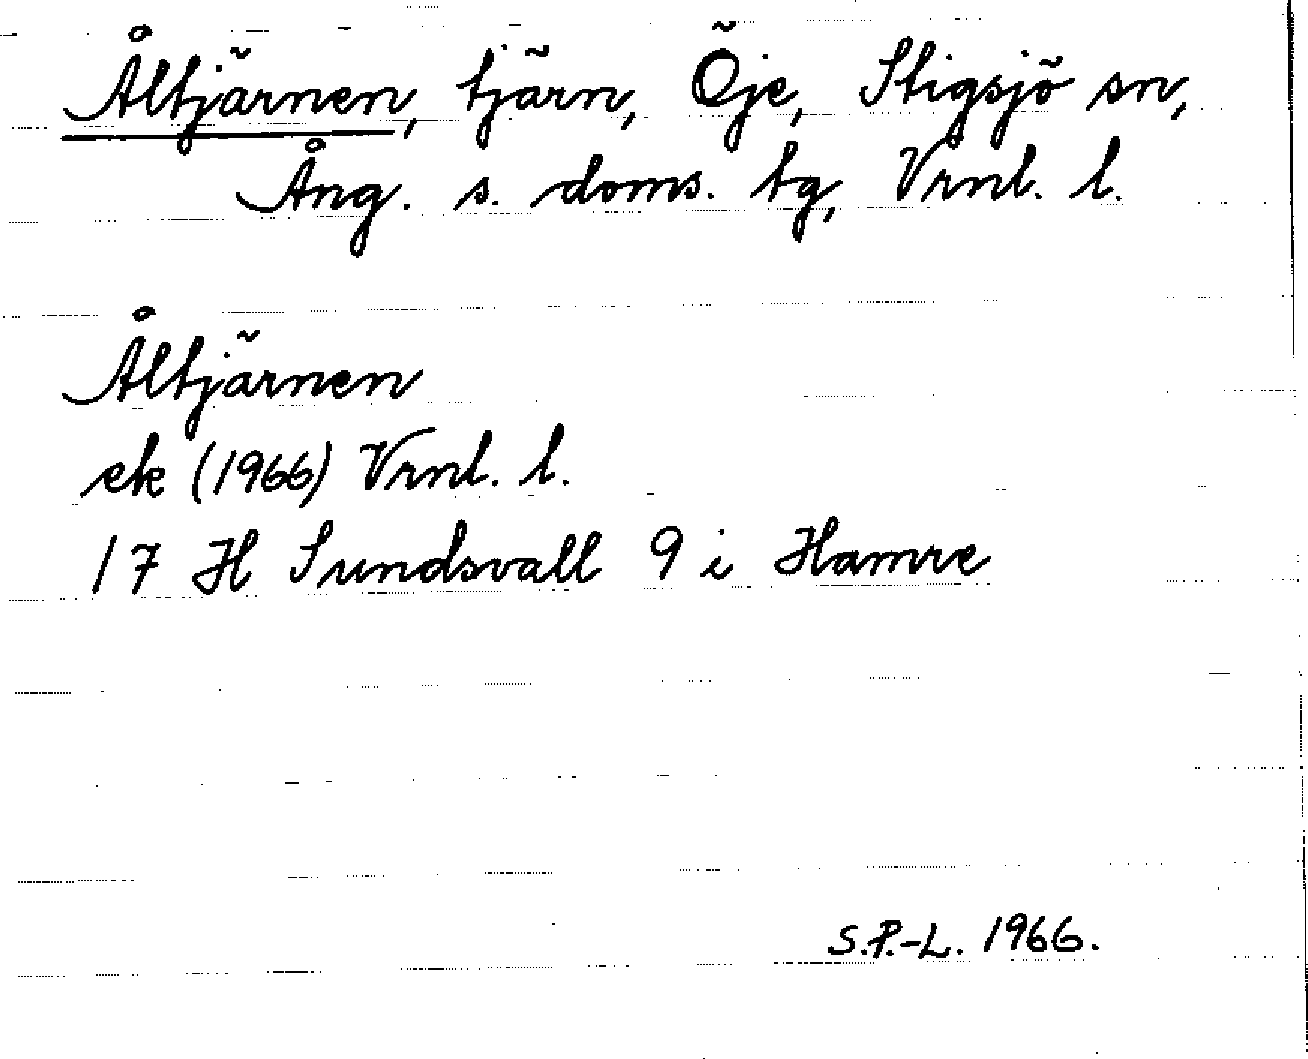 Åltjärnen, tjärn, Öje, Stigsjö sn,
Ång. s. doms. tg, Vrnl. l.
Åltjärnen
ek (1966) Vrnl. l.
17 H Sundsvall 9 i Hamre
S.P.-L. 1966.